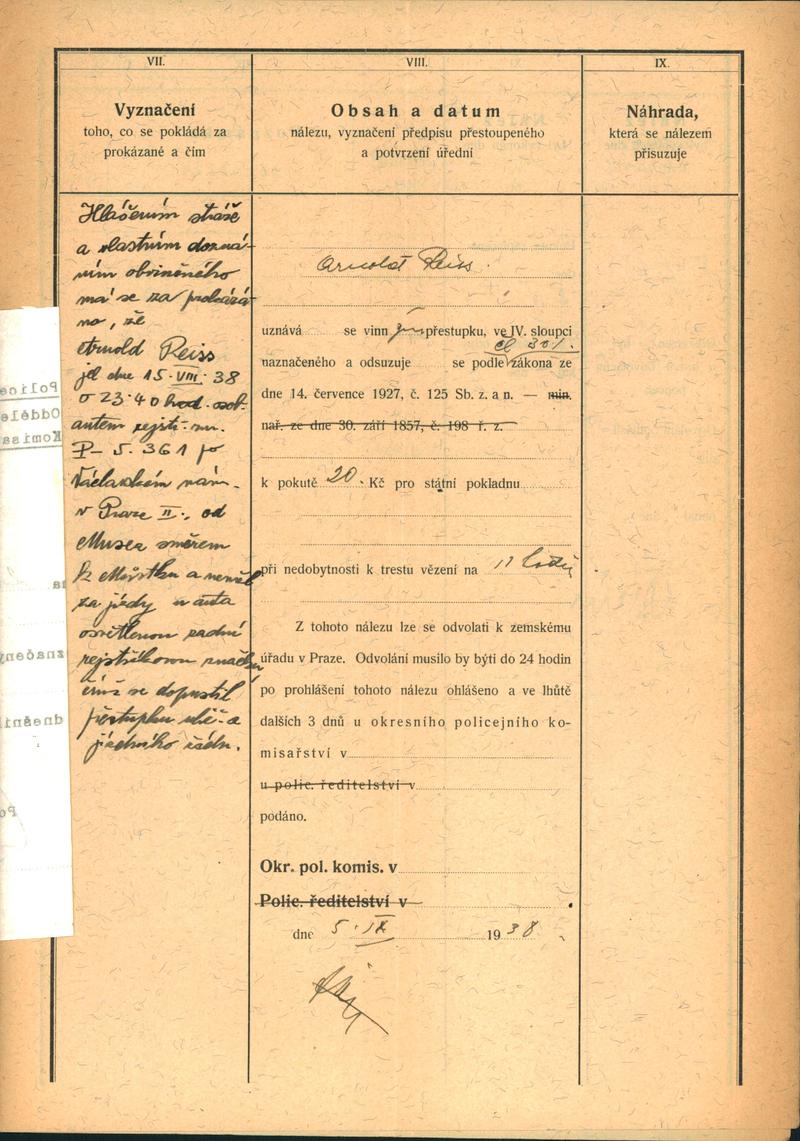 VII.
Vyznačení
toho, co se pokládá za
prokázané a čím
Hlášením stráže
a vlastním dozná-
ním obviněného
má se za prokázá-
no, že
Arnold Reiss
jel dne 15. VIII. 38
o 23.40 hod. osob.
autem rejstř. zn.
P - 5.361 po
Václavském nám.
v Praze II., od
Musea směrem
k Můstku a neměl
za jízdy u auta
osvětlenou zadní
rejstříkovou značku
čímž se dopustil
přestupku ulič. a
jízdního řádu.
VIII.
Obsah a datum
nálezu, vyznačení předpisu přestoupeného
a potvrzení úřední
Arnold Reiss.
uznává se vinn přestupku, ve IV. sloupci
čl. 3 o/1.
naznačeného a odsuzuje se podle zákona ze
dne 14. července 1927, č. 125 Sb. z. a n. — min.
nař. ze dne 30. září 1857, č. 198 ř. z.
k pokutě 20.- Kč pro státní pokladnu
při nedobytnosti k trestu vězení na 12 hodin
Z tohoto nálezu lze se odvolati k zemskému
úřadu v Praze. Odvolání musilo by býti do 24 hodin
po prohlášení tohoto nálezu ohlášeno a ve lhůtě
dalších 3 dnů u okresního policejního ko-
misařství v
u polic. ředitelství v
podáno.
Okr. pol. komis. v
Polic. ředitelství v
dne 5. IX. 1938
IX.
Náhrada,
která se nálezem
přisuzuje